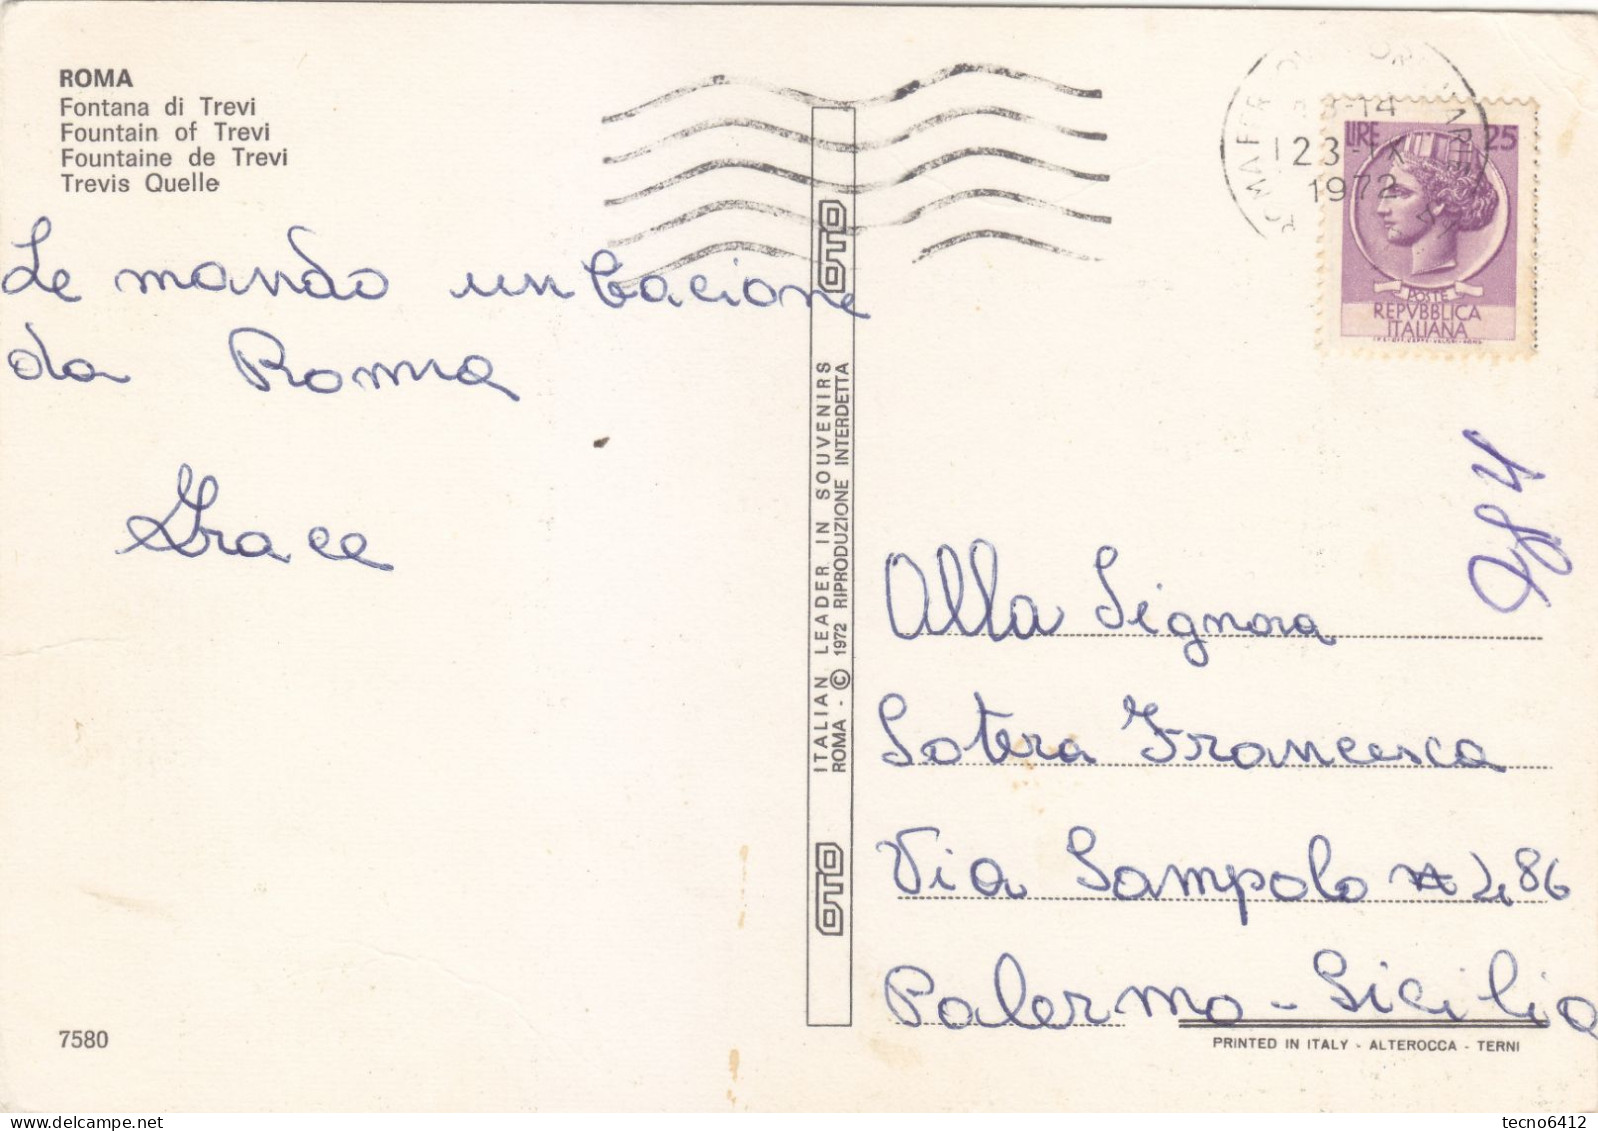 ROMA
Fontana di Trevi
Fountain of Trevi
Fountaine de Trevi
Trevis Quelle
Le mando un bacione
da Roma
Grace
7580
OTO
ITALIAN LEADER IN SOUVENIRS
ROMA - © 1972 RIPRODUZIONE INTERDETTA
OTO
23-IX
1972
LIRE 25
POSTE
REPVBBLICA
ITALIANA
Alla Signora
Lotera Francesca
Via Sampolo N 486
Palermo - Sicilia
PRINTED IN ITALY - ALTEROCCA - TERNI
tecno6412